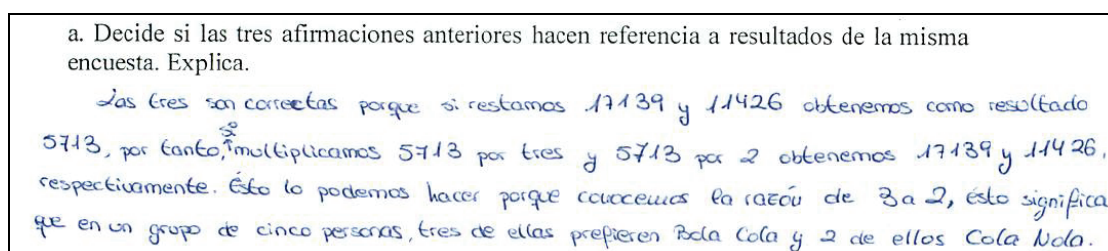 a. Decide si las tres afirmaciones anteriores hacen referencia a resultados de la misma
encuesta. Explica.
Las tres son correctas porque si restamos 17139 y 11426 obtenemos como resultado
5713, por tanto, si multiplicamos 5713 por tres y 5713 por 2 obtenemos 17139 y 11426,
respectivamente. Ésto lo podemos hacer porque conocemos la razón de 3 a 2, ésto significa
que en un grupo de cinco personas, tres de ellas prefieren Bola Cola y 2 de ellos Cola Nola.